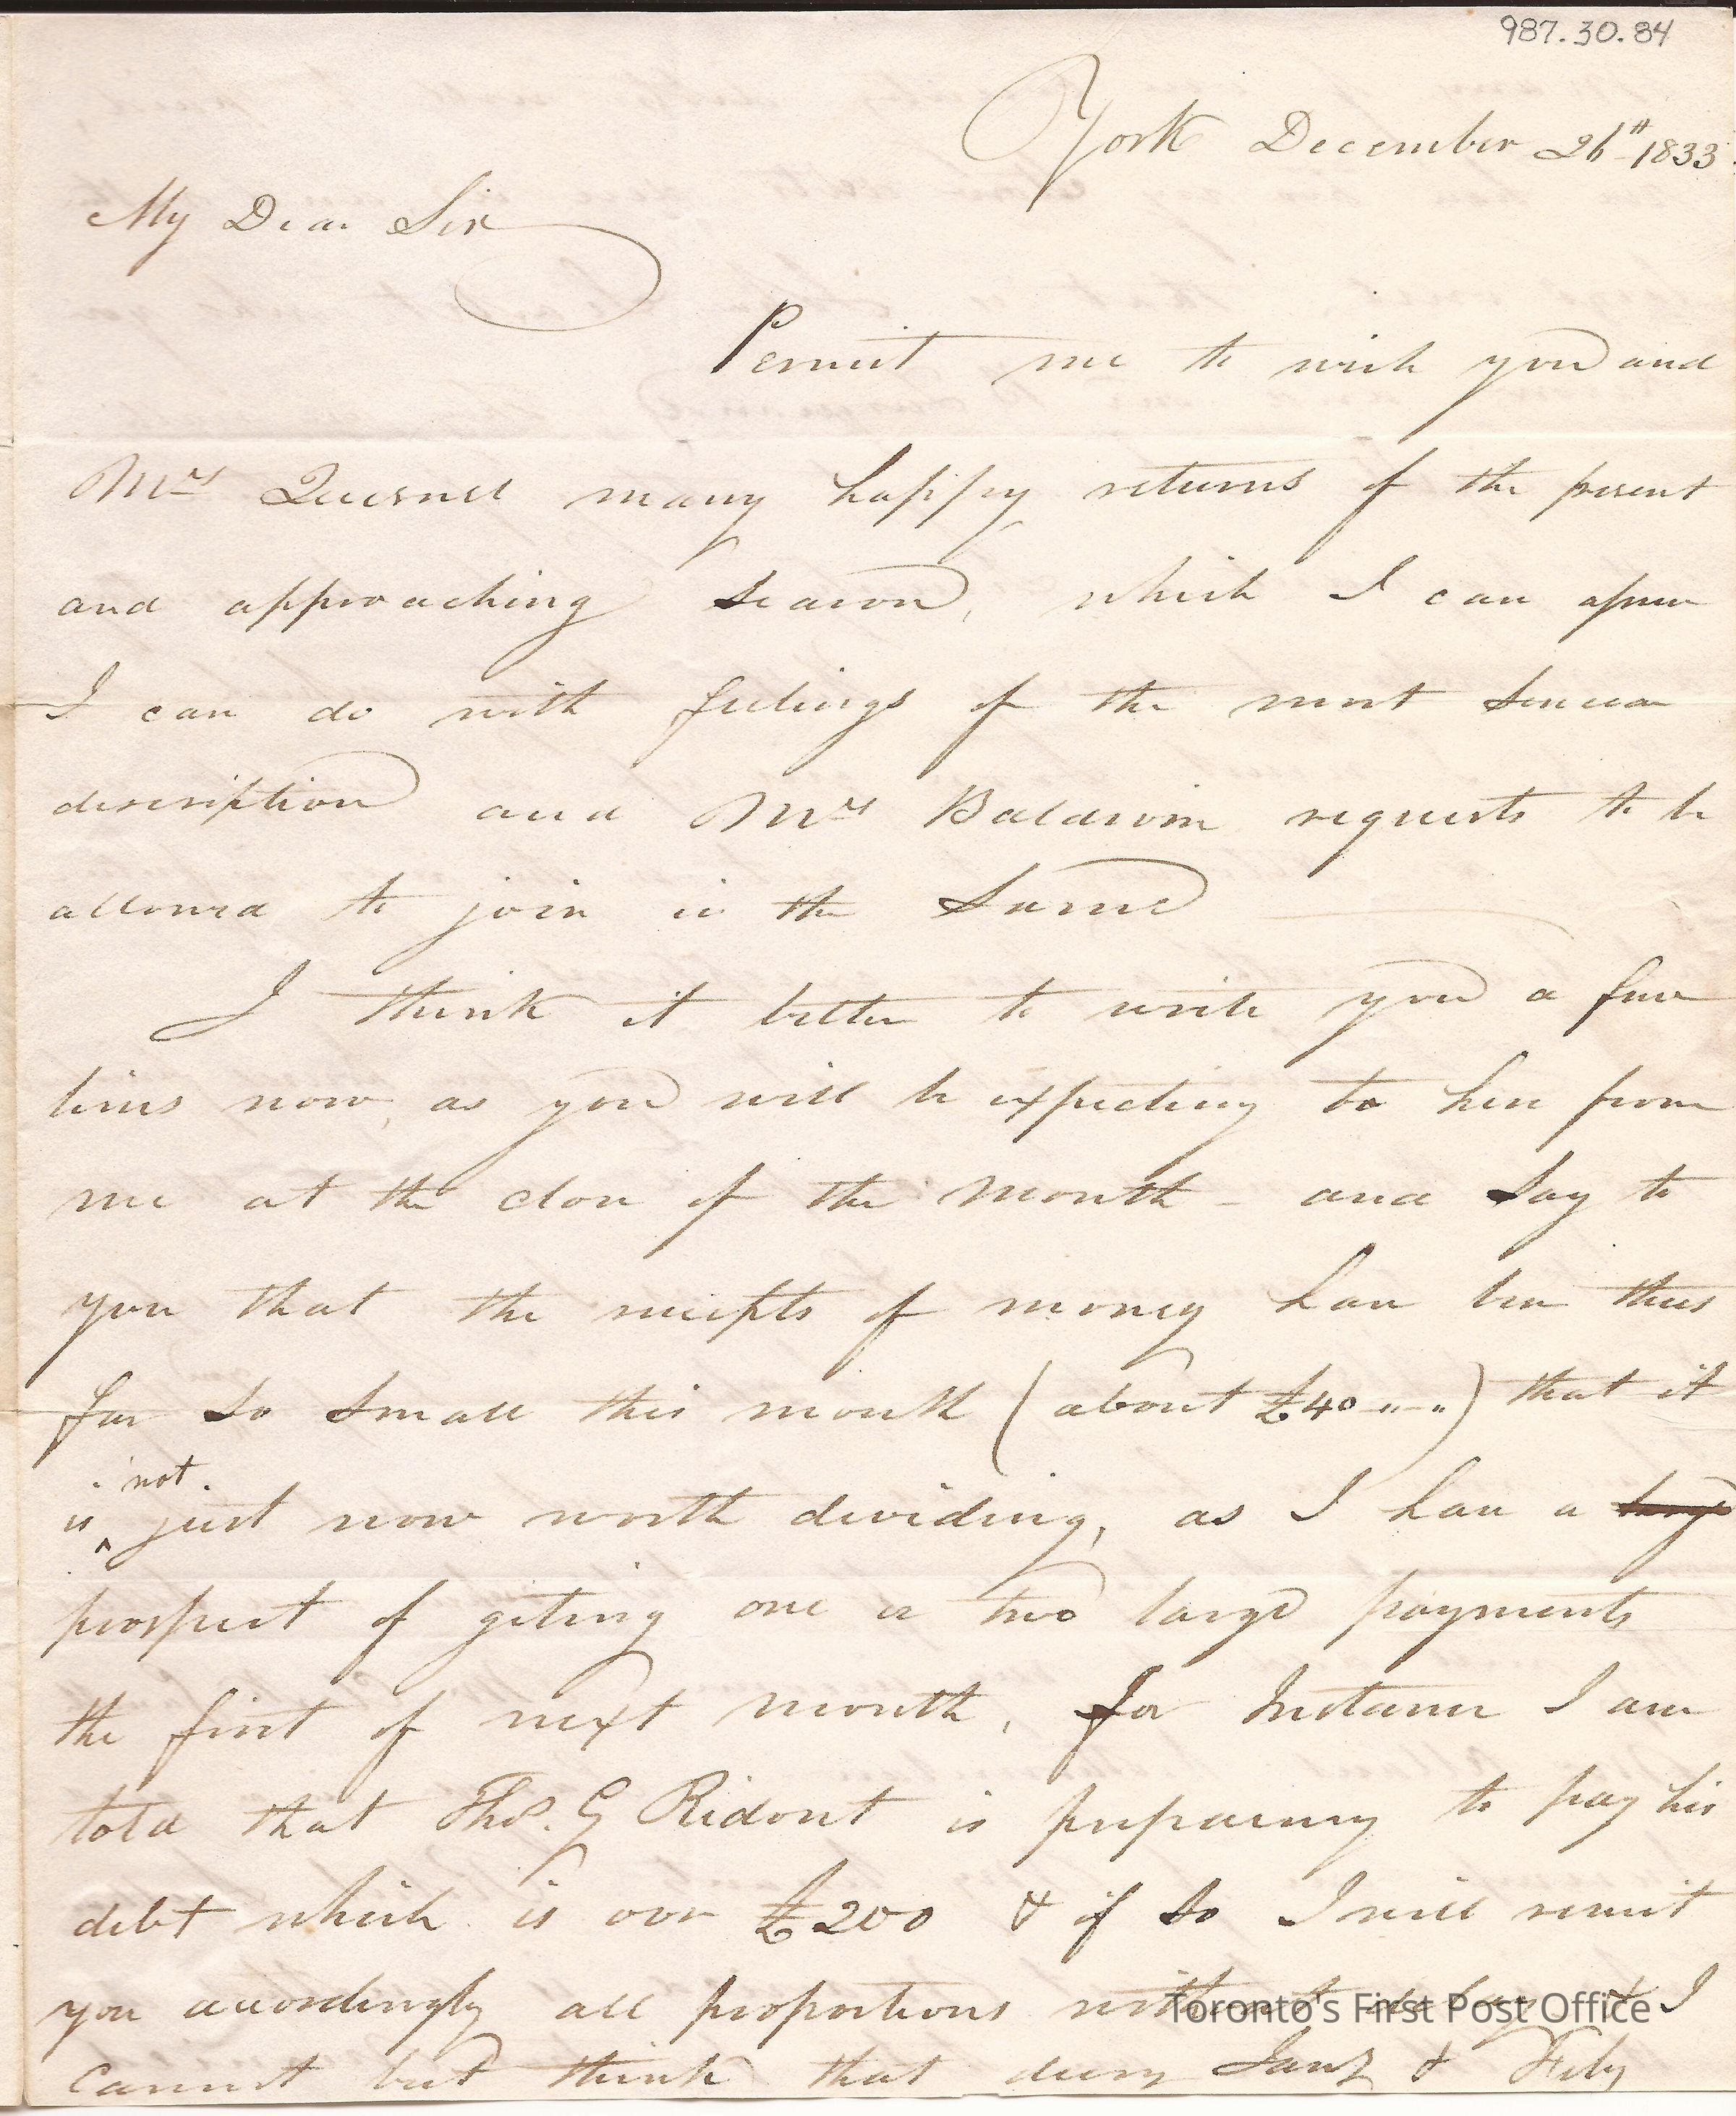 987.30.84
York December 26th 1833
My Dear Sir
Permit me to wish you and
Mrs Quesnel many happy returns of the present
and approaching Season, which I can assure
I can do with feelings of the most Sincere
description and Mrs Baldwin requests to be
allowed to join in the Same
I think it better to write you a few
lines now, as you will be expecting to here from
me at the close of the Month - and Say to
you that the receipts of money have been thus
far So Small this month (about £40 "-") that it
not
is ^ just now worth dividing, as I have a large
prospect of geting one or two large payments
the first of next month, for Instance I am
told that Thos. G Ridout is prepareing to pay his
debt which is over £200 & if So I will remit
you accordingly all proportions without delay & I
Cannot but think that during Jany & Feby
Toronto's First Post Office